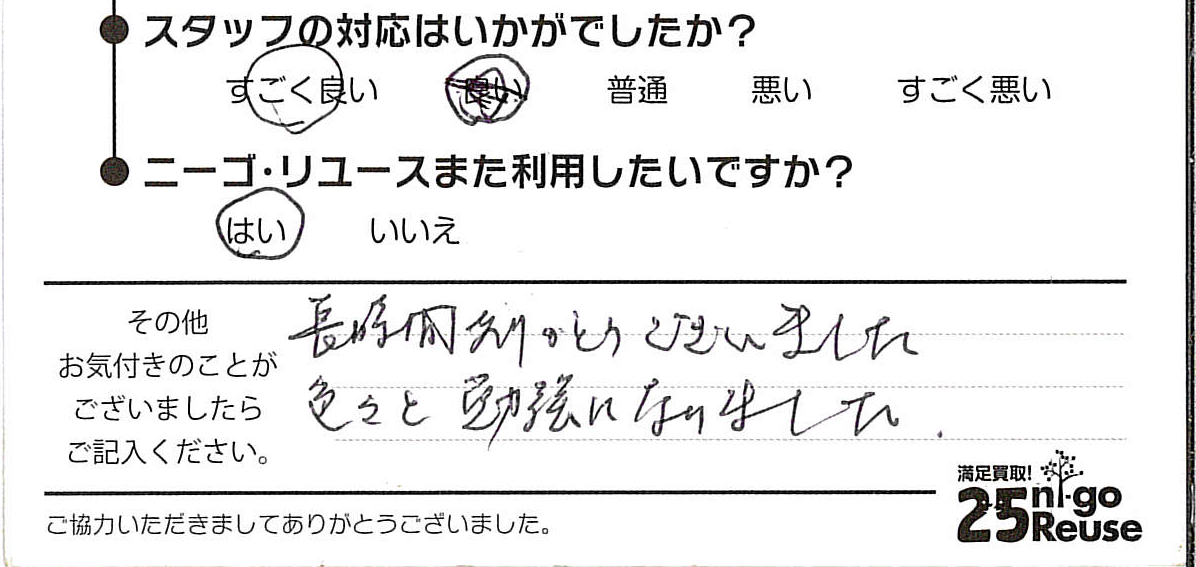 スタッフの対応はいかがでしたか?
すごく良い 良い 普通 悪い すごく悪い
ニーゴ・リユースまた利用したいですか?
はい いいえ
その他
お気付きのことが
ございましたら
ご記入ください。
長時間ありがとうございました
色々と勉強になりました.
ご協力いただきましてありがとうございました。
満足買取!
25 ni-go
Reuse